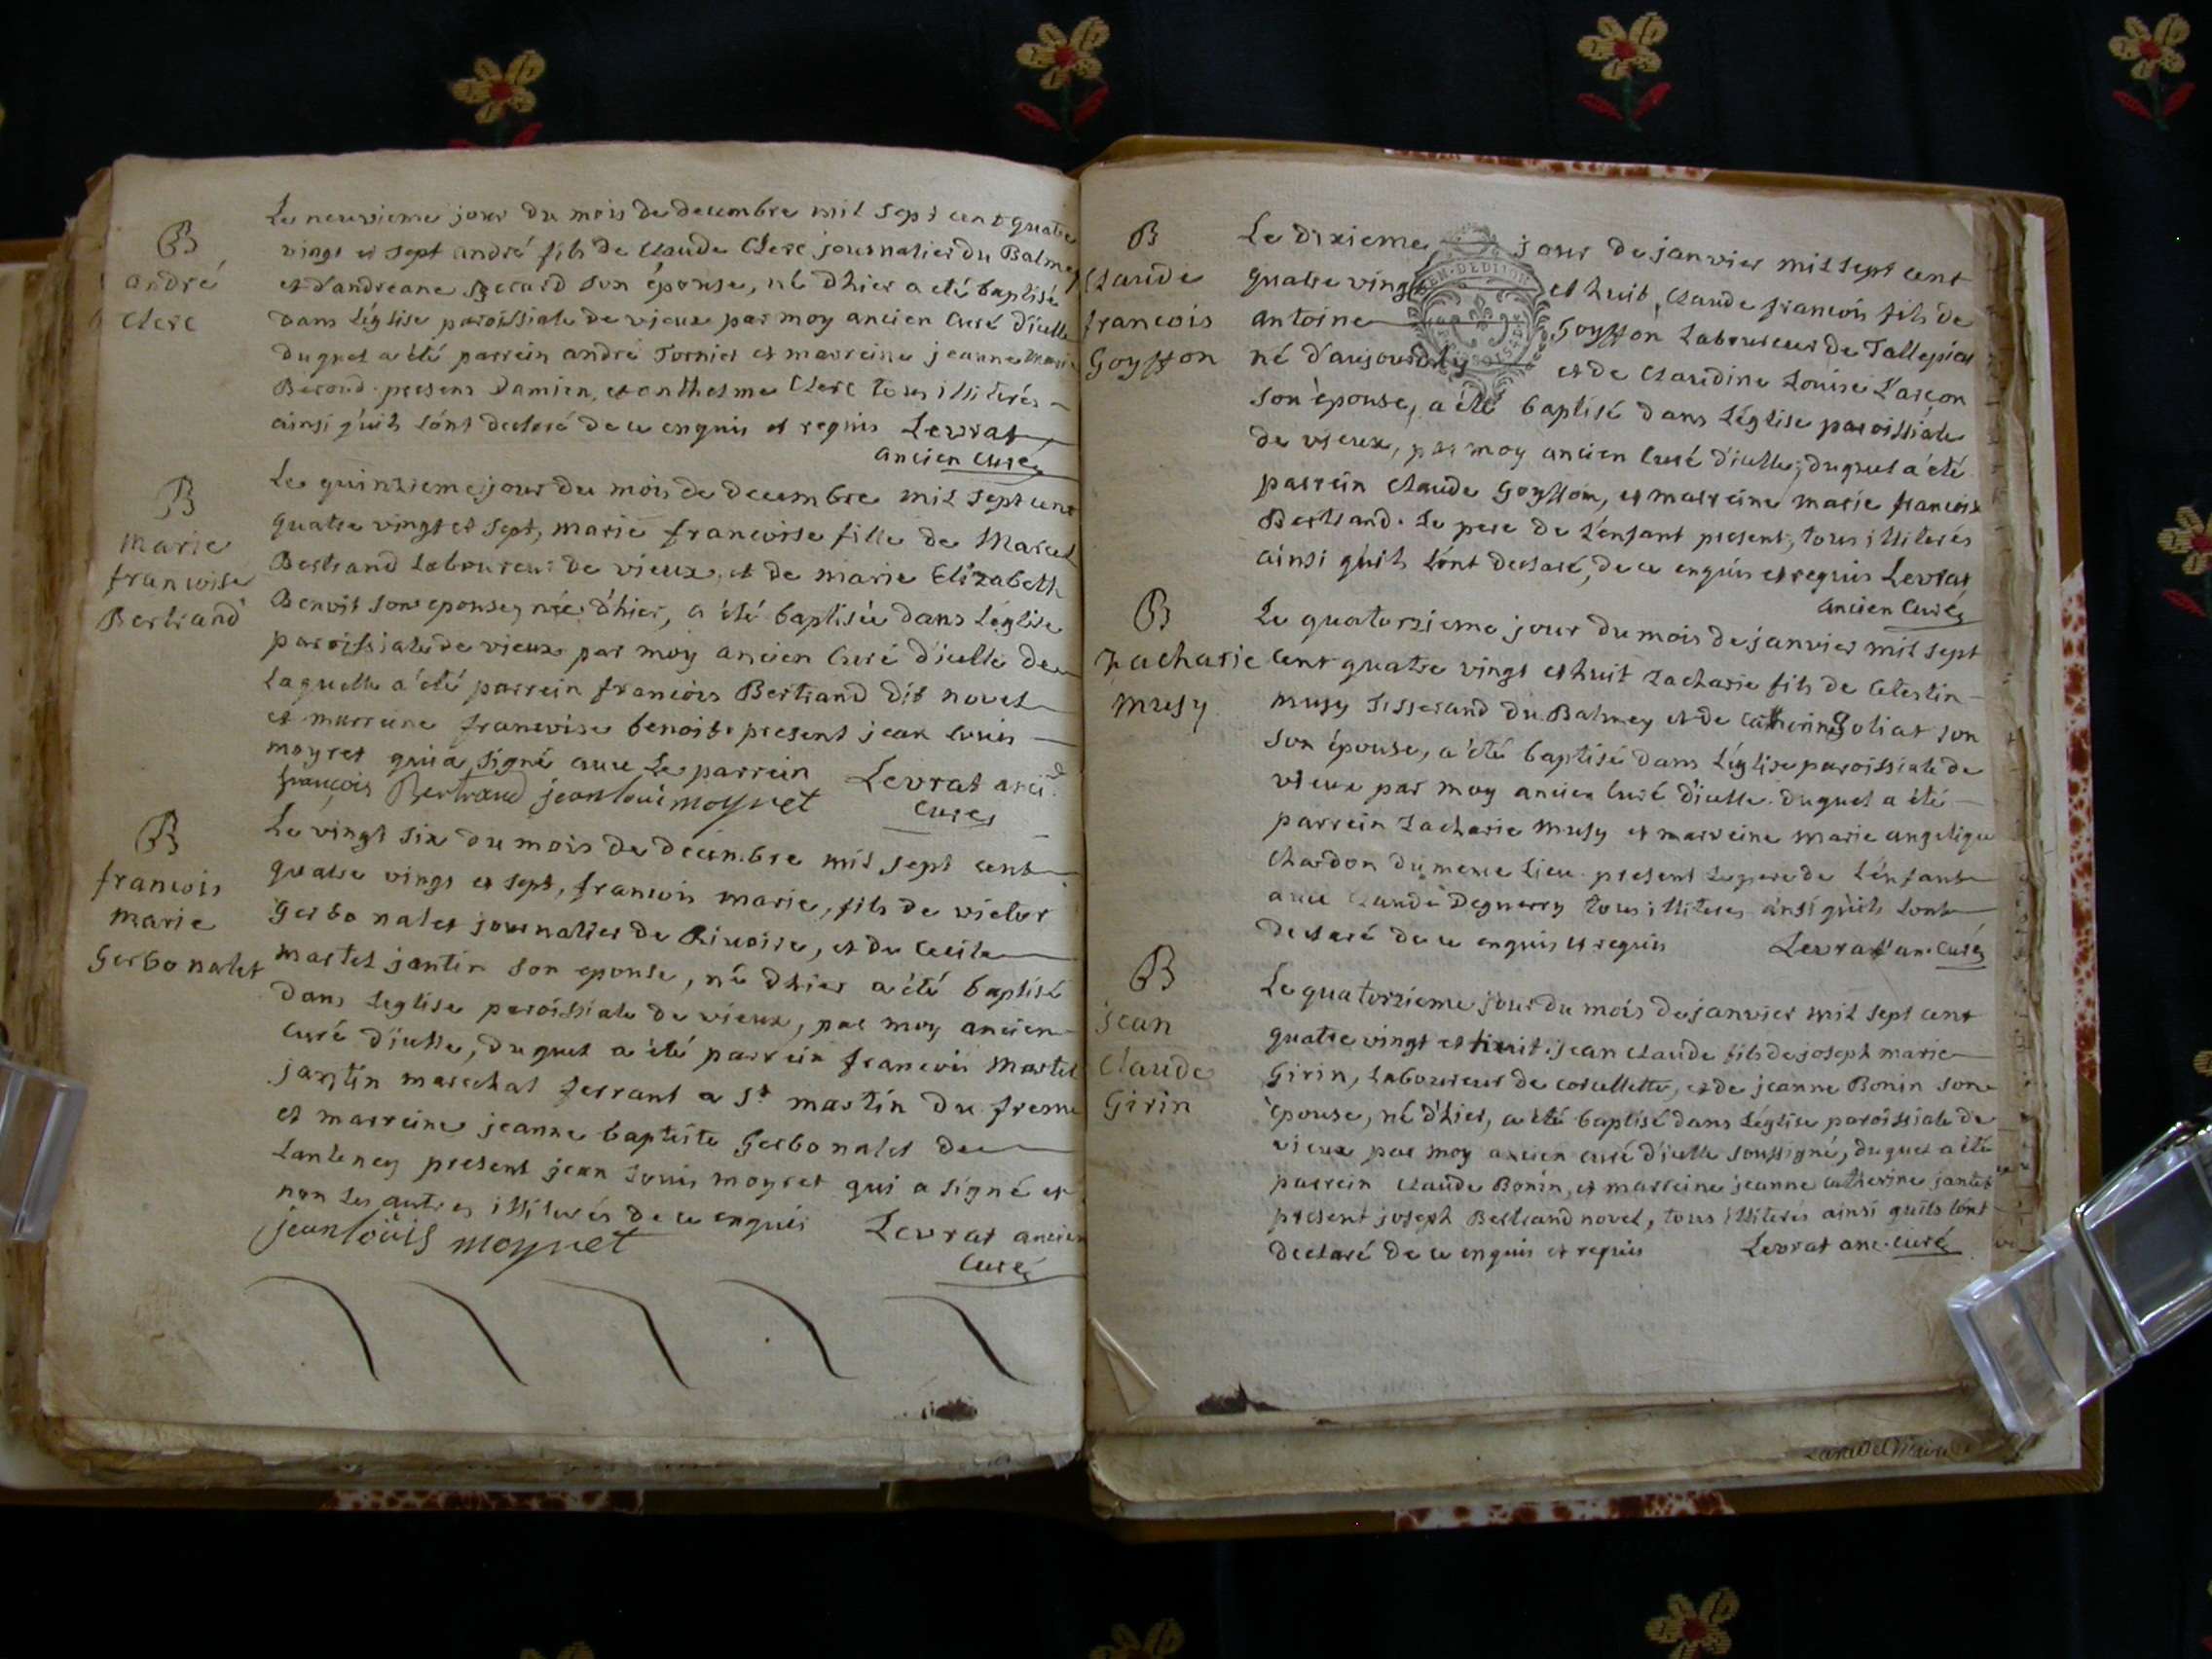 B
andré
Clerc
Le neuvieme jour du mois de decembre mil sept cent quatre
vingt et sept andré fils de Claude Clerc journalier du Balmey
et d'andreane son épouse, né d'hier a eté baptisé
dans L'église paroissiale de vieux par moy ancien Curé d'icelle
duquel a été parrein andré Tornier et marreine jeanne marie
presens Damien, et anthelme Clerc tous illiterés
ainsi quils L'ont declaré de ce enquis et requis Levrat
ancien Curé
B
marie
francoise
Bertrand
Le quinzieme jour du mois de decembre mil sept cent
quatre vingt et sept, marie francoise fille de Marcel
Bertrand Laboureur de vieux, et de marie Elizabeth
Benoit son epouse, née d'hier, a été baptisée dans L'église
paroissiale de vieux par moy ancien Curé d'icelle de
laquelle a été parrein francois Bertrand dit novel
et marreine francoise benoit present jean Louis
moyret qui a signé avec Le parrein Levrat anci.
françois Bertrand jean louis moyret Curé
B
francois
marie
Gerbo nalet
Le vingt six du mois de decembre mil sept cent
quatre vingt et sept, francois marie, fils de victor
Gerbo nalet journalier de Rivoire, et de Cecile
martel jantin son epouse, né d'hier a été baptisé
dans Leglise paroissiale de vieux, par moy ancien
Curé d'icelle, duquel a été parrein francois Martel
jantin marechal ferrant a St martin du fresne
et marreine jeanne baptiste Gerbo nalet de
Lanteney present jean Louis moyret qui a signé et
non Les autres illiterés de ce enquis Levrat ancien
jean loüis moyret Curé
B
Claude
francois
Goyffon
Le dixieme jour de janvier mil sept cent
quatre vingt et huit, Claude francois fils de
antoine Goyffon Laboureur de
né d'aujourdhy et de Claudine Louise Larçon
son épouse, a été baptisé dans L'église paroissiale
de vieux, par moy ancien Curé d'icelle, duquel a été
parrein Claude Goyffon, et marreine marie francoise
Bertrand. Le pere de L'enfant present, tous illiterés
ainsi quils L'ont declaré, de ce enquis et requis Levrat
ancien Curé
B
Zacharie
musy
Le quatorzieme jour du mois de janvier mil sept
Cent quatre vingt et huit Zacharie fils de Celestin
musy Tisserand du Balmey et de Catherine Goliat son
son épouse, a été baptisé dans L'église paroissiale de
vieux par moy ancien Curé d'icelle. duquel a été
parrein Zacharie musy et marreine marie angelique
Chardon du meme Lieu. present Le pere de L'enfant
avec Claude Deguerry tous illiteres ainsi quils Lont
declaré de ce enquis et requis Levrat an. Curé
B
jean
Claude
Girin
Le quatorzieme jour du mois de janvier mil sept cent
quatre vingt et huit. jean claude fils de joseph marie
Girin, Laboureur de corcellette, et de jeanne Bonin son
épouse, né d'hier, a été baptisé dans L'église paroissiale de
vieux par moy ancien curé d'icelle soussigné, duquel a été
parrein Claude Bonin, et marreine jeanne catherine jantet
present joseph Bertrand novel, tous illiterés ainsi quils L'ont
declaré de ce enquis et requis Levrat anc. curé